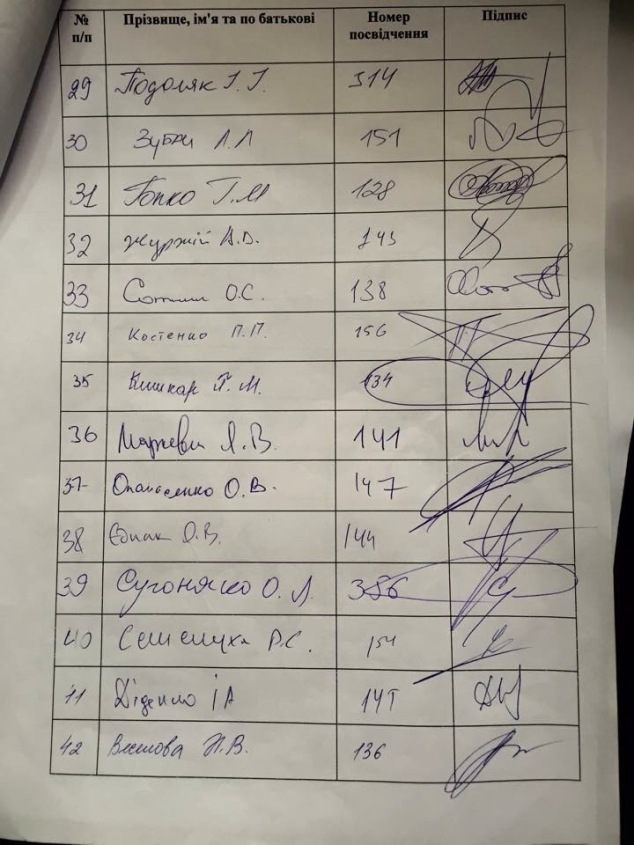 № п/п Прізвище, ім'я та по батькові Номер посвідчення Підпис
29 Подоляк І. І. 314
30 Зубач Л.Л 151
31 Гопко Г.М 128
32 Журжій А.В. 143
33 О.С. 138
34 Костенко П.П. 156
35 Кишкар П. М. 134
36 Маркевич Я. В. 141
37 Опанасенко О.В. 147
38 Єднак О.В. 144
39 Сугоняко О. Л. 386
40 Семенуха Р.С. 154
41 Діденко І А
42 Веселова Н.В. 136